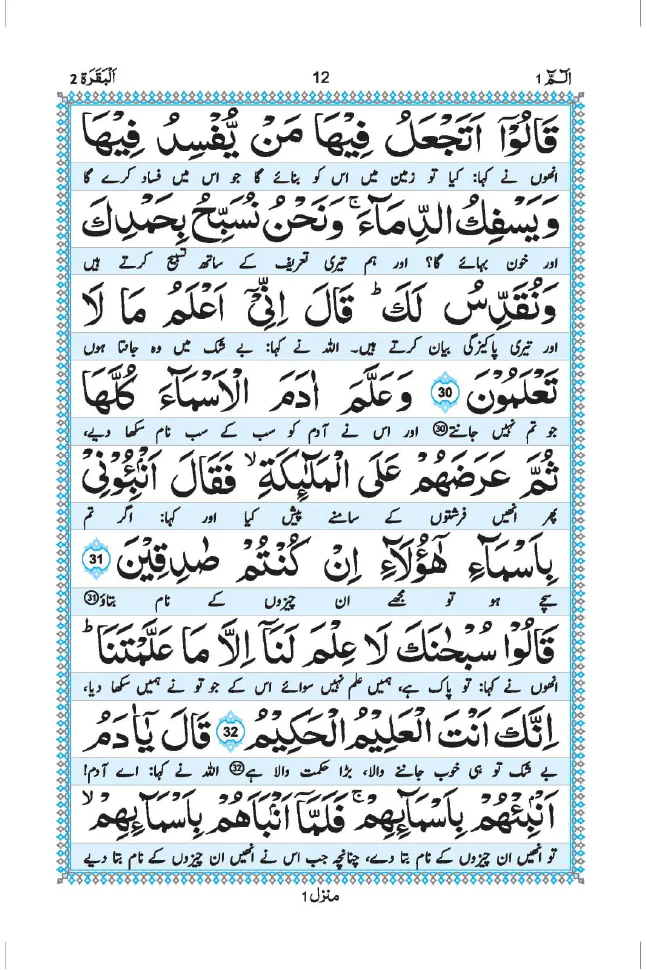 الٓمّٓ 1 12 اَلْبَقَرَة 2
قَالُوْۤا اَتَجْعَلُ فِيْهَا مَنْ يُّفْسِدُ فِيْهَا
انھوں نے کہا: کیا تو زمین میں اس کو بنائے گا جو اس میں فساد کرے گا
وَيَسْفِكُ الدِّمَآءَ ۚ وَنَحْنُ نُسَبِّحُ بِحَمْدِكَ
اور خون بہائے گا؟ اور ہم تیری تعریف کے ساتھ تسبیح کرتے ہیں
وَنُقَدِّسُ لَكَ ؕ قَالَ اِنِّيْۤ اَعْلَمُ مَا لَا
اور تیری پاکیزگی بیان کرتے ہیں۔ اللہ نے کہا: بے شک میں وہ جانتا ہوں
تَعْلَمُوْنَ 30 وَعَلَّمَ اٰدَمَ الْاَسْمَآءَ كُلَّهَا
جو تم نہیں جانتے 30 اور اس نے آدم کو سب کے سب نام سکھا دیے،
ثُمَّ عَرَضَهُمْ عَلَى الْمَلٰٓئِكَةِ ۙ فَقَالَ اَنْۢبِـُٔوْنِيْ
پھر انھیں فرشتوں کے سامنے پیش کیا اور کہا: اگر تم
بِاَسْمَآءِ هٰۤؤُلَآءِ اِنْ كُنْتُمْ صٰدِقِيْنَ 31
سچے ہو تو مجھے ان چیزوں کے نام بتاؤ 31
قَالُوْا سُبْحٰنَكَ لَا عِلْمَ لَنَاۤ اِلَّا مَا عَلَّمْتَنَا ؕ
انھوں نے کہا: تو پاک ہے، ہمیں علم نہیں سوائے اس کے جو تو نے ہمیں سکھا دیا،
اِنَّكَ اَنْتَ الْعَلِيْمُ الْحَكِيْمُ 32 قَالَ يٰۤاٰدَمُ
بے شک تو ہی خوب جاننے والا، بڑا حکمت والا ہے 32 اللہ نے کہا: اے آدم!
اَنْۢبِئْهُمْ بِاَسْمَآىِٕهِمْ ۚ فَلَمَّاۤ اَنْۢبَاَهُمْ بِاَسْمَآىِٕهِمْ ۙ
تو انھیں ان چیزوں کے نام بتا دے، چنانچہ جب اس نے انھیں ان چیزوں کے نام بتا دیے
منزل 1